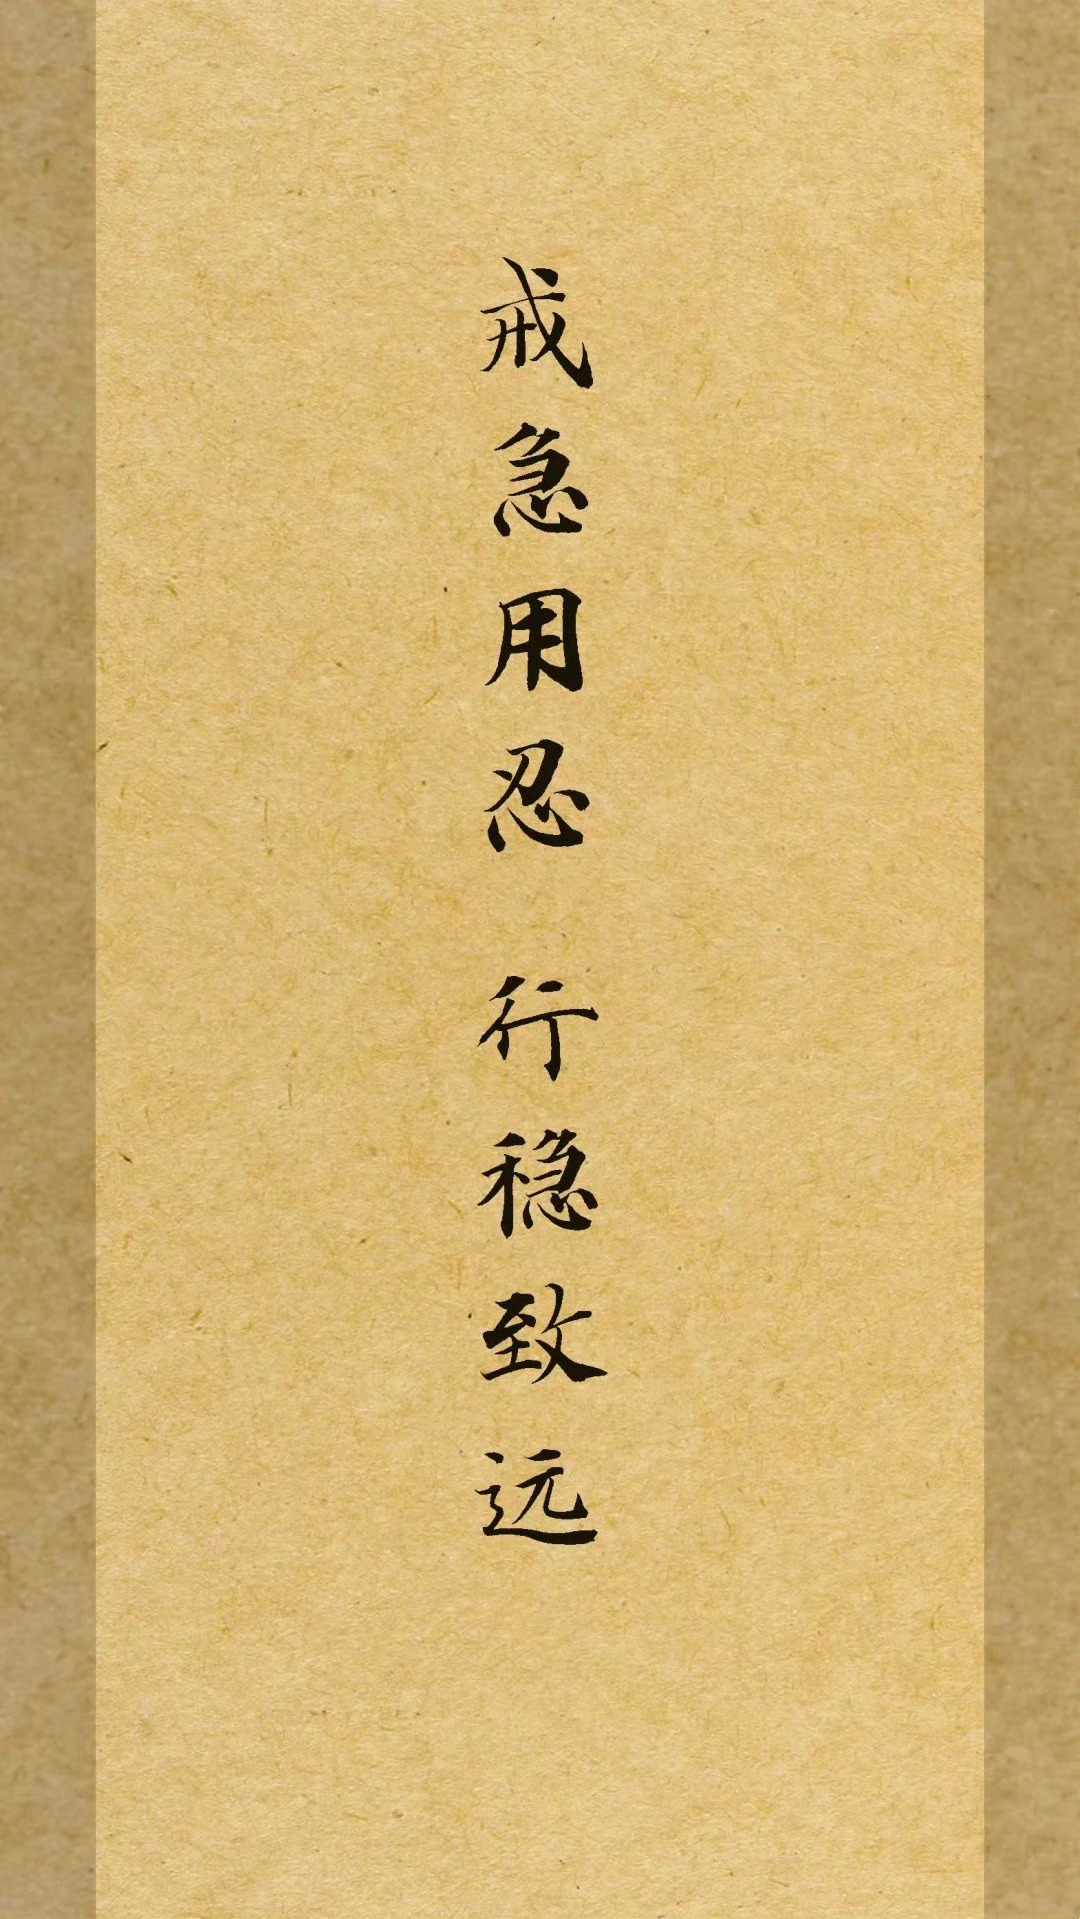 戒急用忍 行稳致远